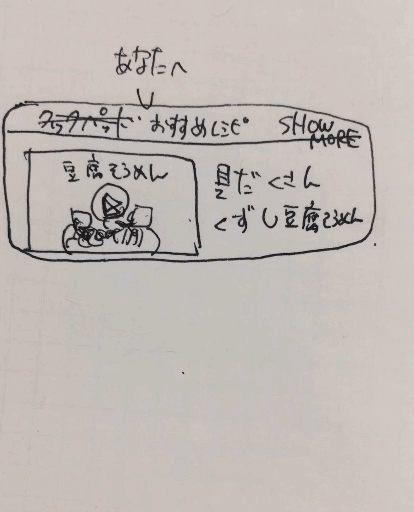 あなたへ
クックパッド おすすめレシピ SHOW MORE
豆腐そうめん
具だくさん
くずし豆腐そうめん